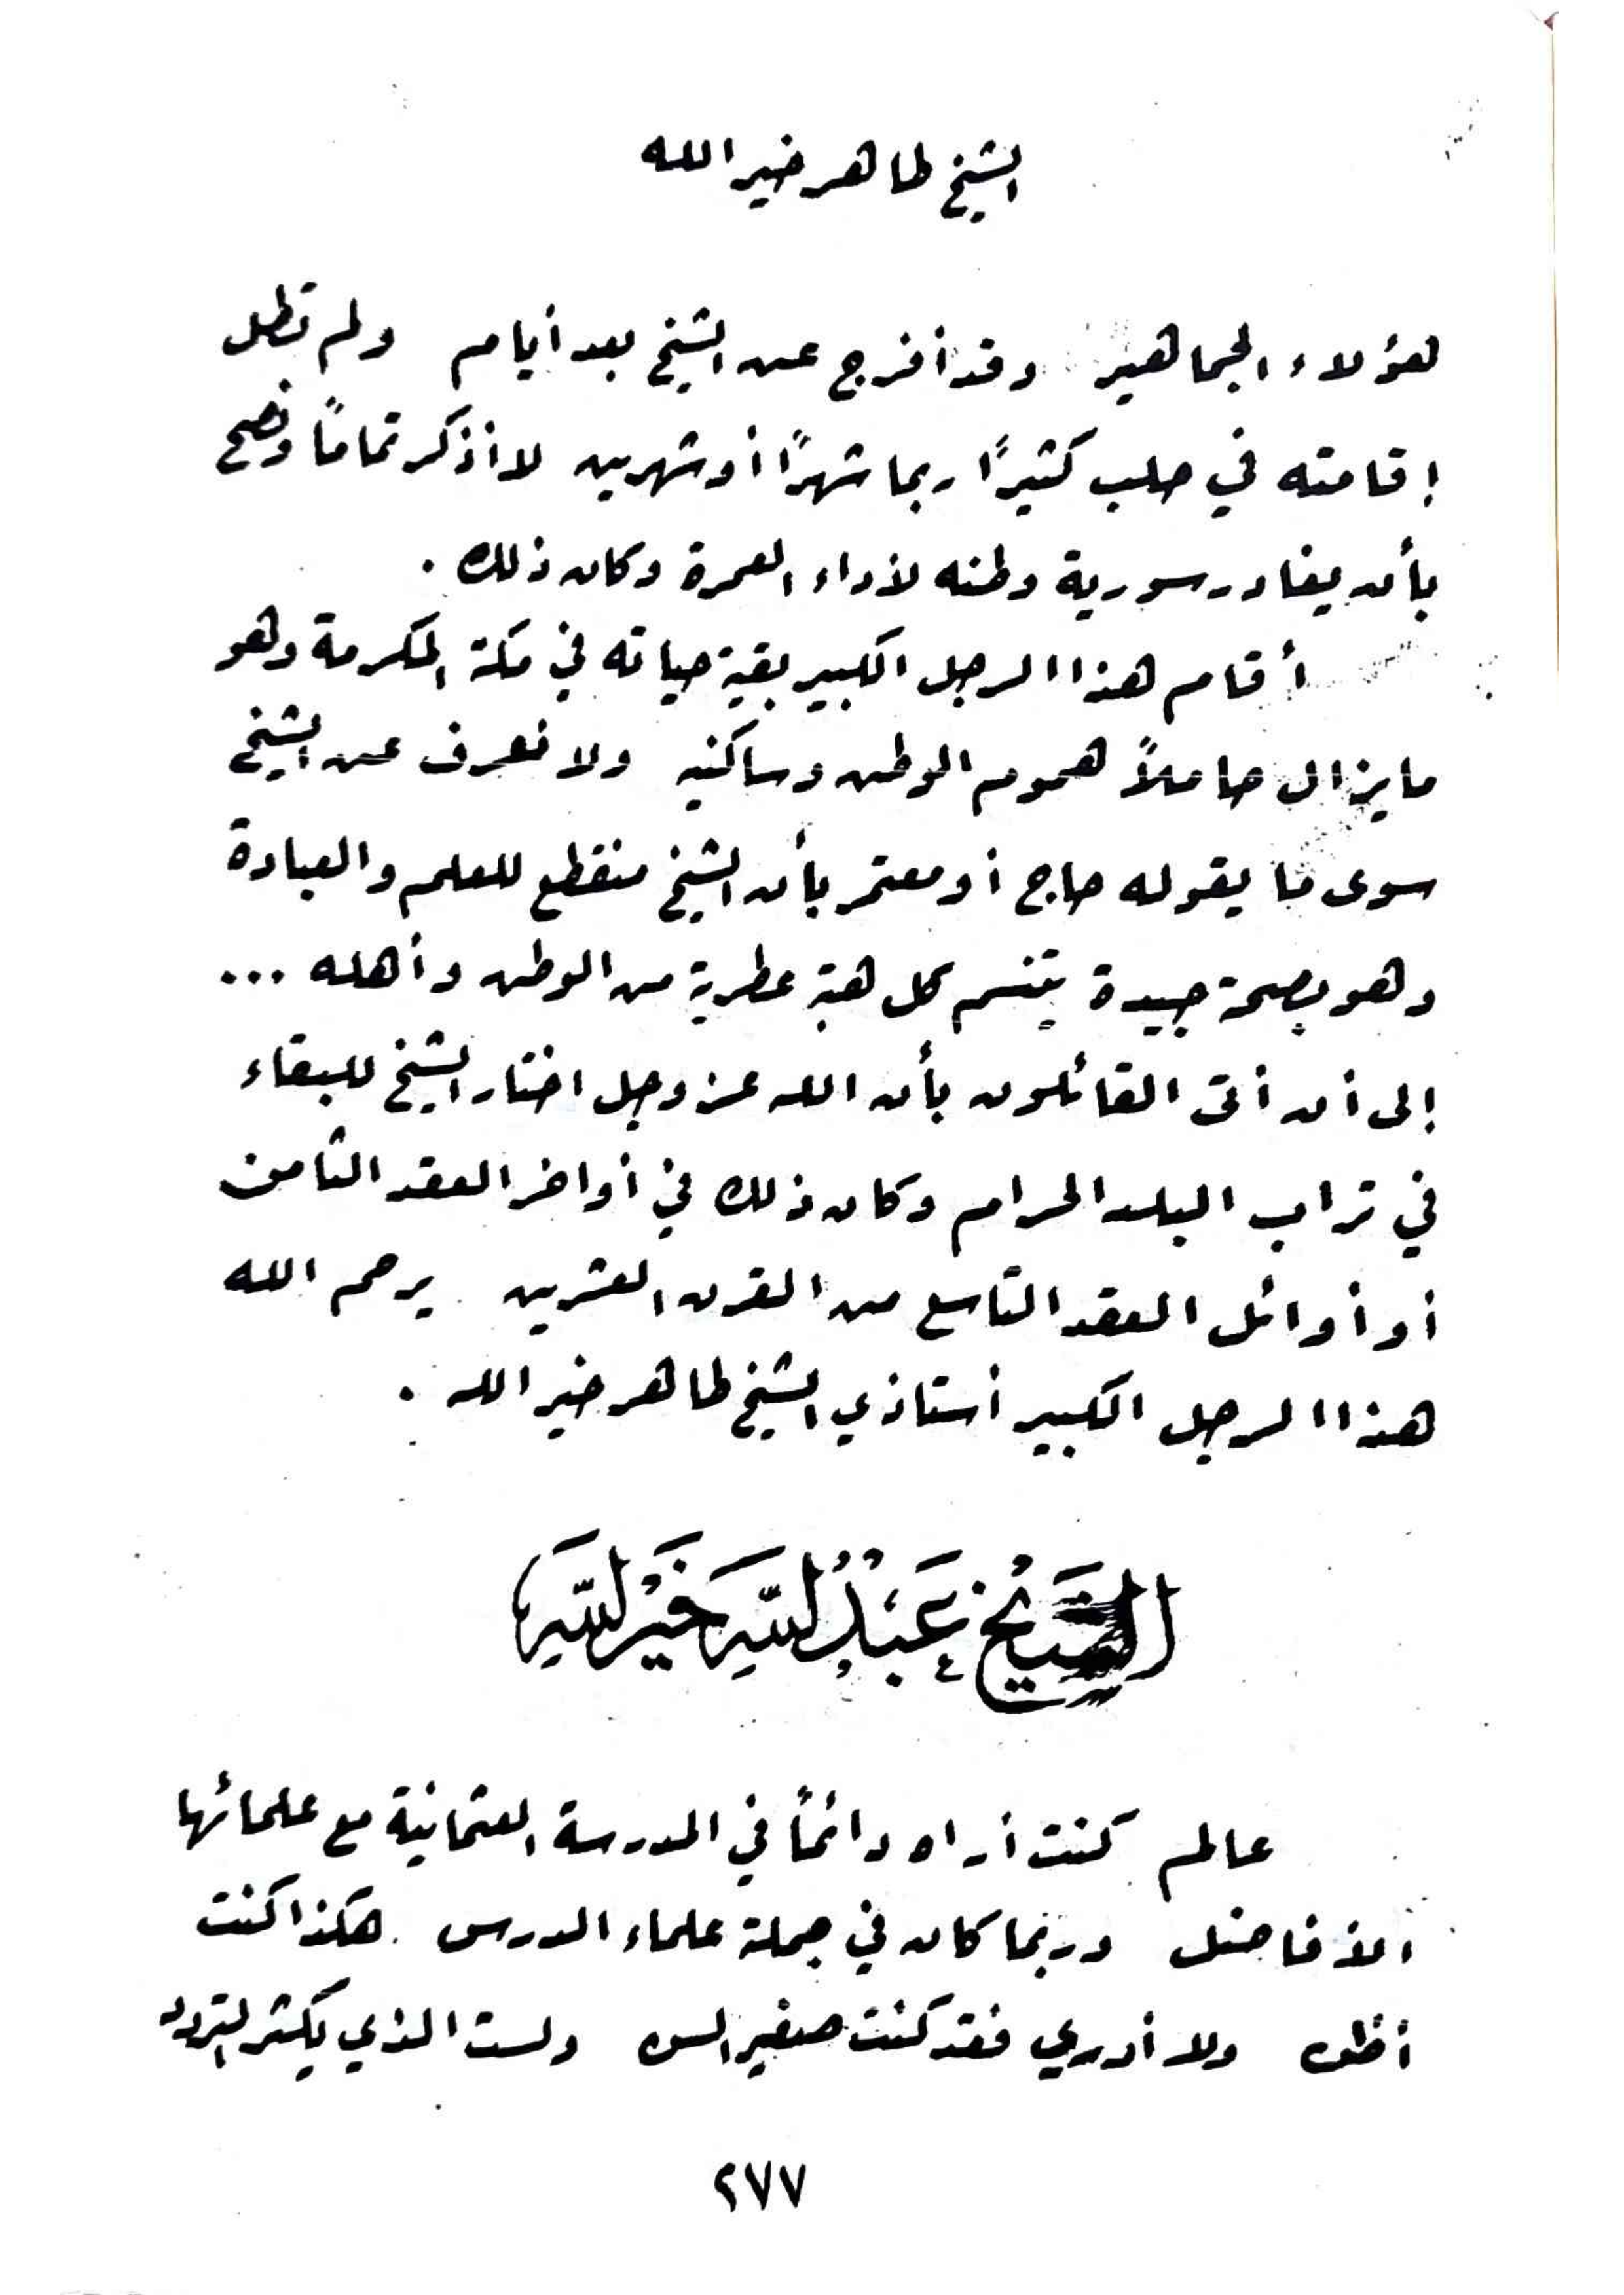 الشيخ طاهر خير الله
هؤلاء الجماهير وقد أفرج عن الشيخ بعد أيام ولم تطل
إقامته في حلب كثيرًا ربما شهرًا أو شهرين لا أذكر تمامًا ونصح
بأن يغادر سورية وطنه لأداء العمرة وكان ذلك .
أقام هذا الرجل الكبير بقية حياته في مكة المكرمة وهو
مايزال حاملاً هموم الوطن وساكنيه ولا نعرف عن الشيخ
سوى ما يقوله حاج أو معتمر بأن الشيخ منقطع للعلم والعبادة
وهو بصحة جيدة يتنسم كل هبة عطرية من الوطن وأهله ...
إلى أن أتى القائلون بأن الله عز وجل اختار الشيخ للبقاء
في تراب البلد الحرام وكان ذلك في أواخر العقد الثامن
أو أوائل العقد التاسع من القرن العشرين يرحم الله
هذا الرجل الكبير أستاذي الشيخ طاهر خير الله .
الشَيْخ عَبْدُ اللَّهِ خَيْرُ اللَّهِ
عالم كنت أراه دائمًا في المدرسة العثمانية مع علمائها
الأفاضل وربما كان في جملة علماء الدرس هكذا كنت
أظن ولا أدري فقد كنت صغير السن ولست الذي يكثر التردد
٢٧٧